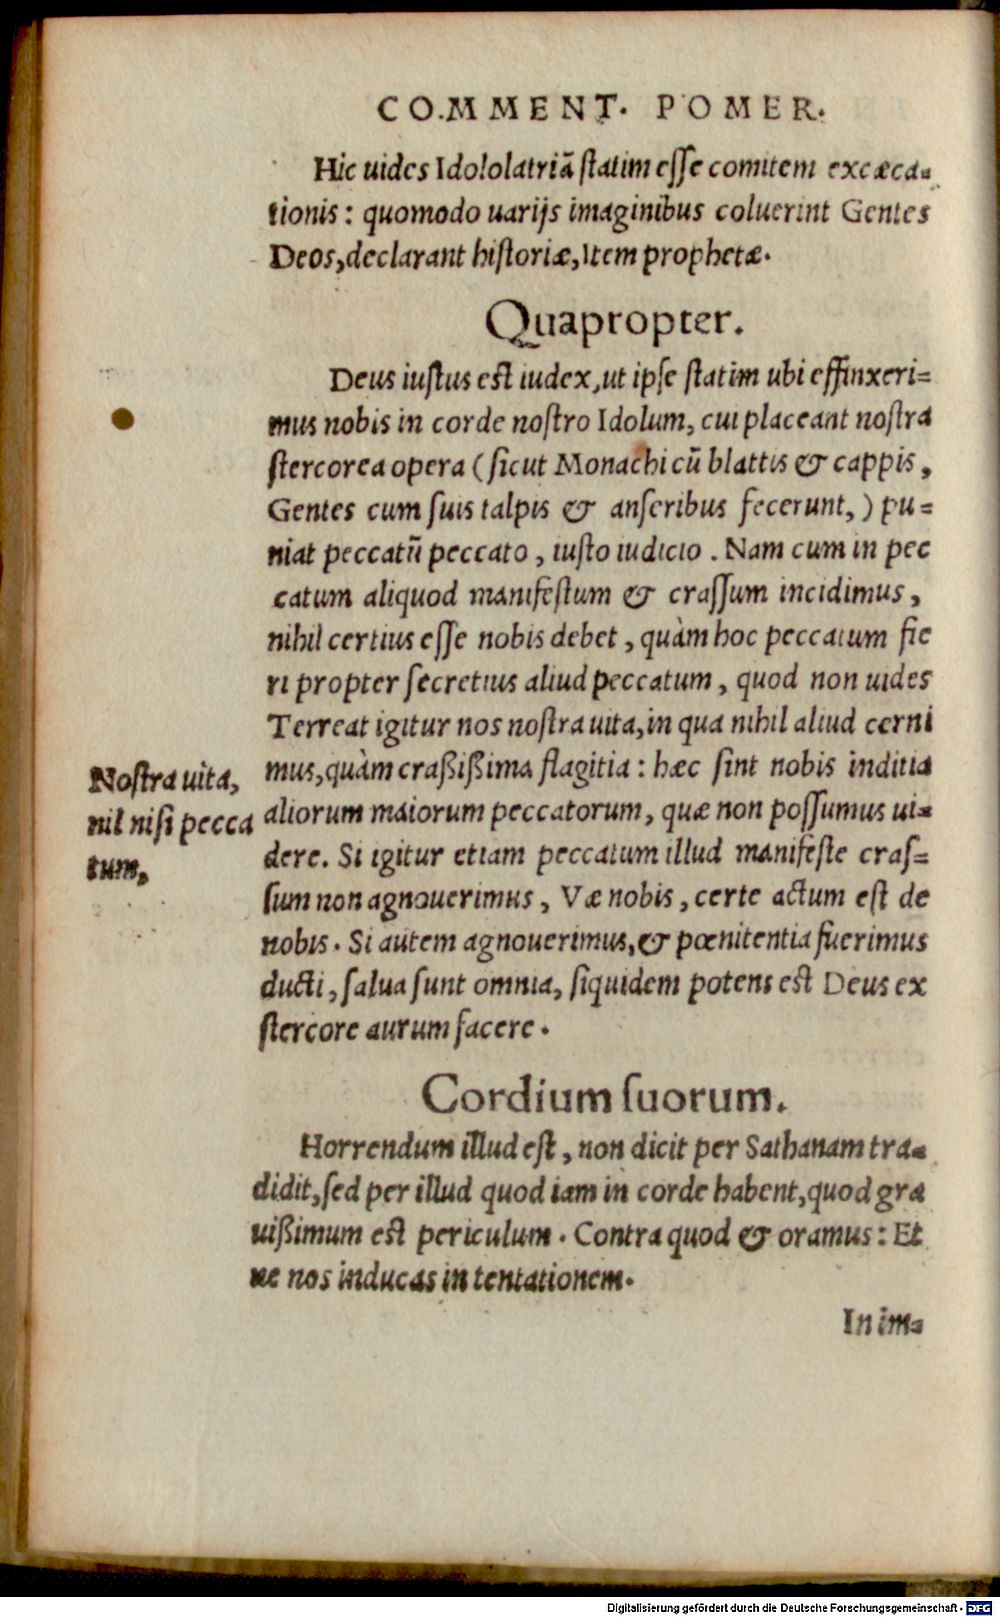 COMMENT. POMER.
Hic uides Idololatriã ſtatim eſſe comitem excæca=
tionis: quomodo uarijs imaginibus coluerint Gentes
Deos, declarant hiſtoriæ, Item prophetæ.
Quapropter.
Deus iuſtus eſt iudex, ut ipſe ſtatim ubi effinxeri=
mus nobis in corde noſtro Idolum, cui placeant noſtra
ſtercorea opera (ſicut Monachi cũ blattis & cappis,
Gentes cum ſuis talpis & anſeribus fecerunt,) pu=
niat peccatũ peccato, iuſto iudicio. Nam cum in pec
catum aliquod manifeſtum & craſſum incidimus,
nihil certius eſſe nobis debet, quàm hoc peccatum fie
ri propter ſecretius aliud peccatum, quod non uides
Terreat igitur nos noſtra uita, in qua nihil aliud cerni
mus, quàm craßißima flagitia: hæc ſint nobis inditia
aliorum maiorum peccatorum, quæ non poſſumus ui=
dere. Si igitur etiam peccatum illud manifeſte craſ=
ſum non agnouerimus, Væ nobis, certe actum eſt de
nobis. Si autem agnouerimus, & pœnitentia fuerimus
ducti, ſalua ſunt omnia, ſiquidem potens eſt Deus ex
ſtercore aurum facere.
Noſtra uita,
nil niſi pecca
tum,
Cordium ſuorum.
Horrendum illud eſt, non dicit per Sathanam tra=
didit, ſed per illud quod iam in corde habent, quod gra
uißimum eſt periculum. Contra quod & oramus: Et
ne nos inducas in tentationem.
In im=
Digitalisierung gefördert durch die Deutsche Forschungsgemeinschaft - DFG